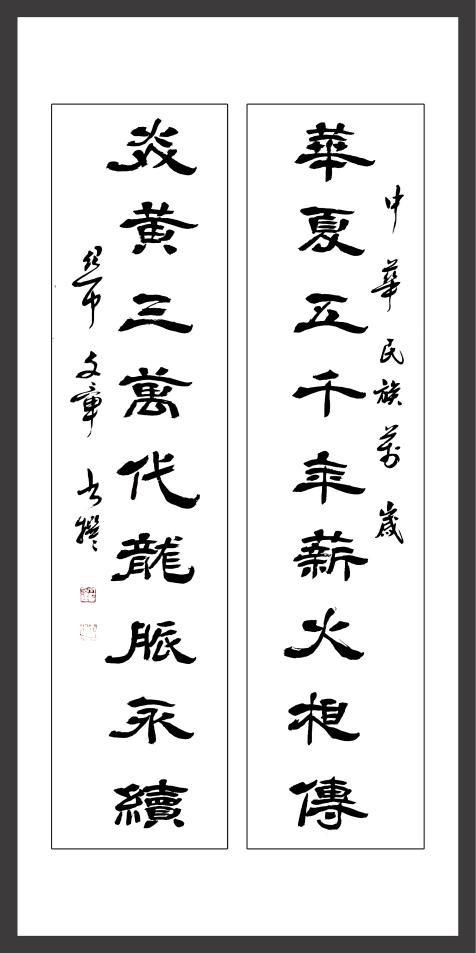 中華民族萬歲
華夏五千年薪火相傳
炎黃三萬代龍脈永續
文章 書撰